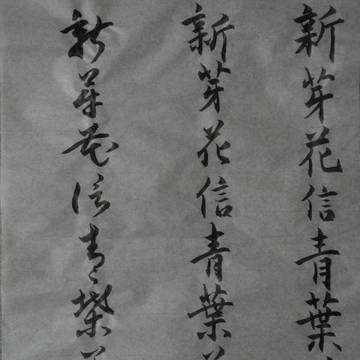 新芽花信青葉
新芽花信青葉
新芽花信青葉